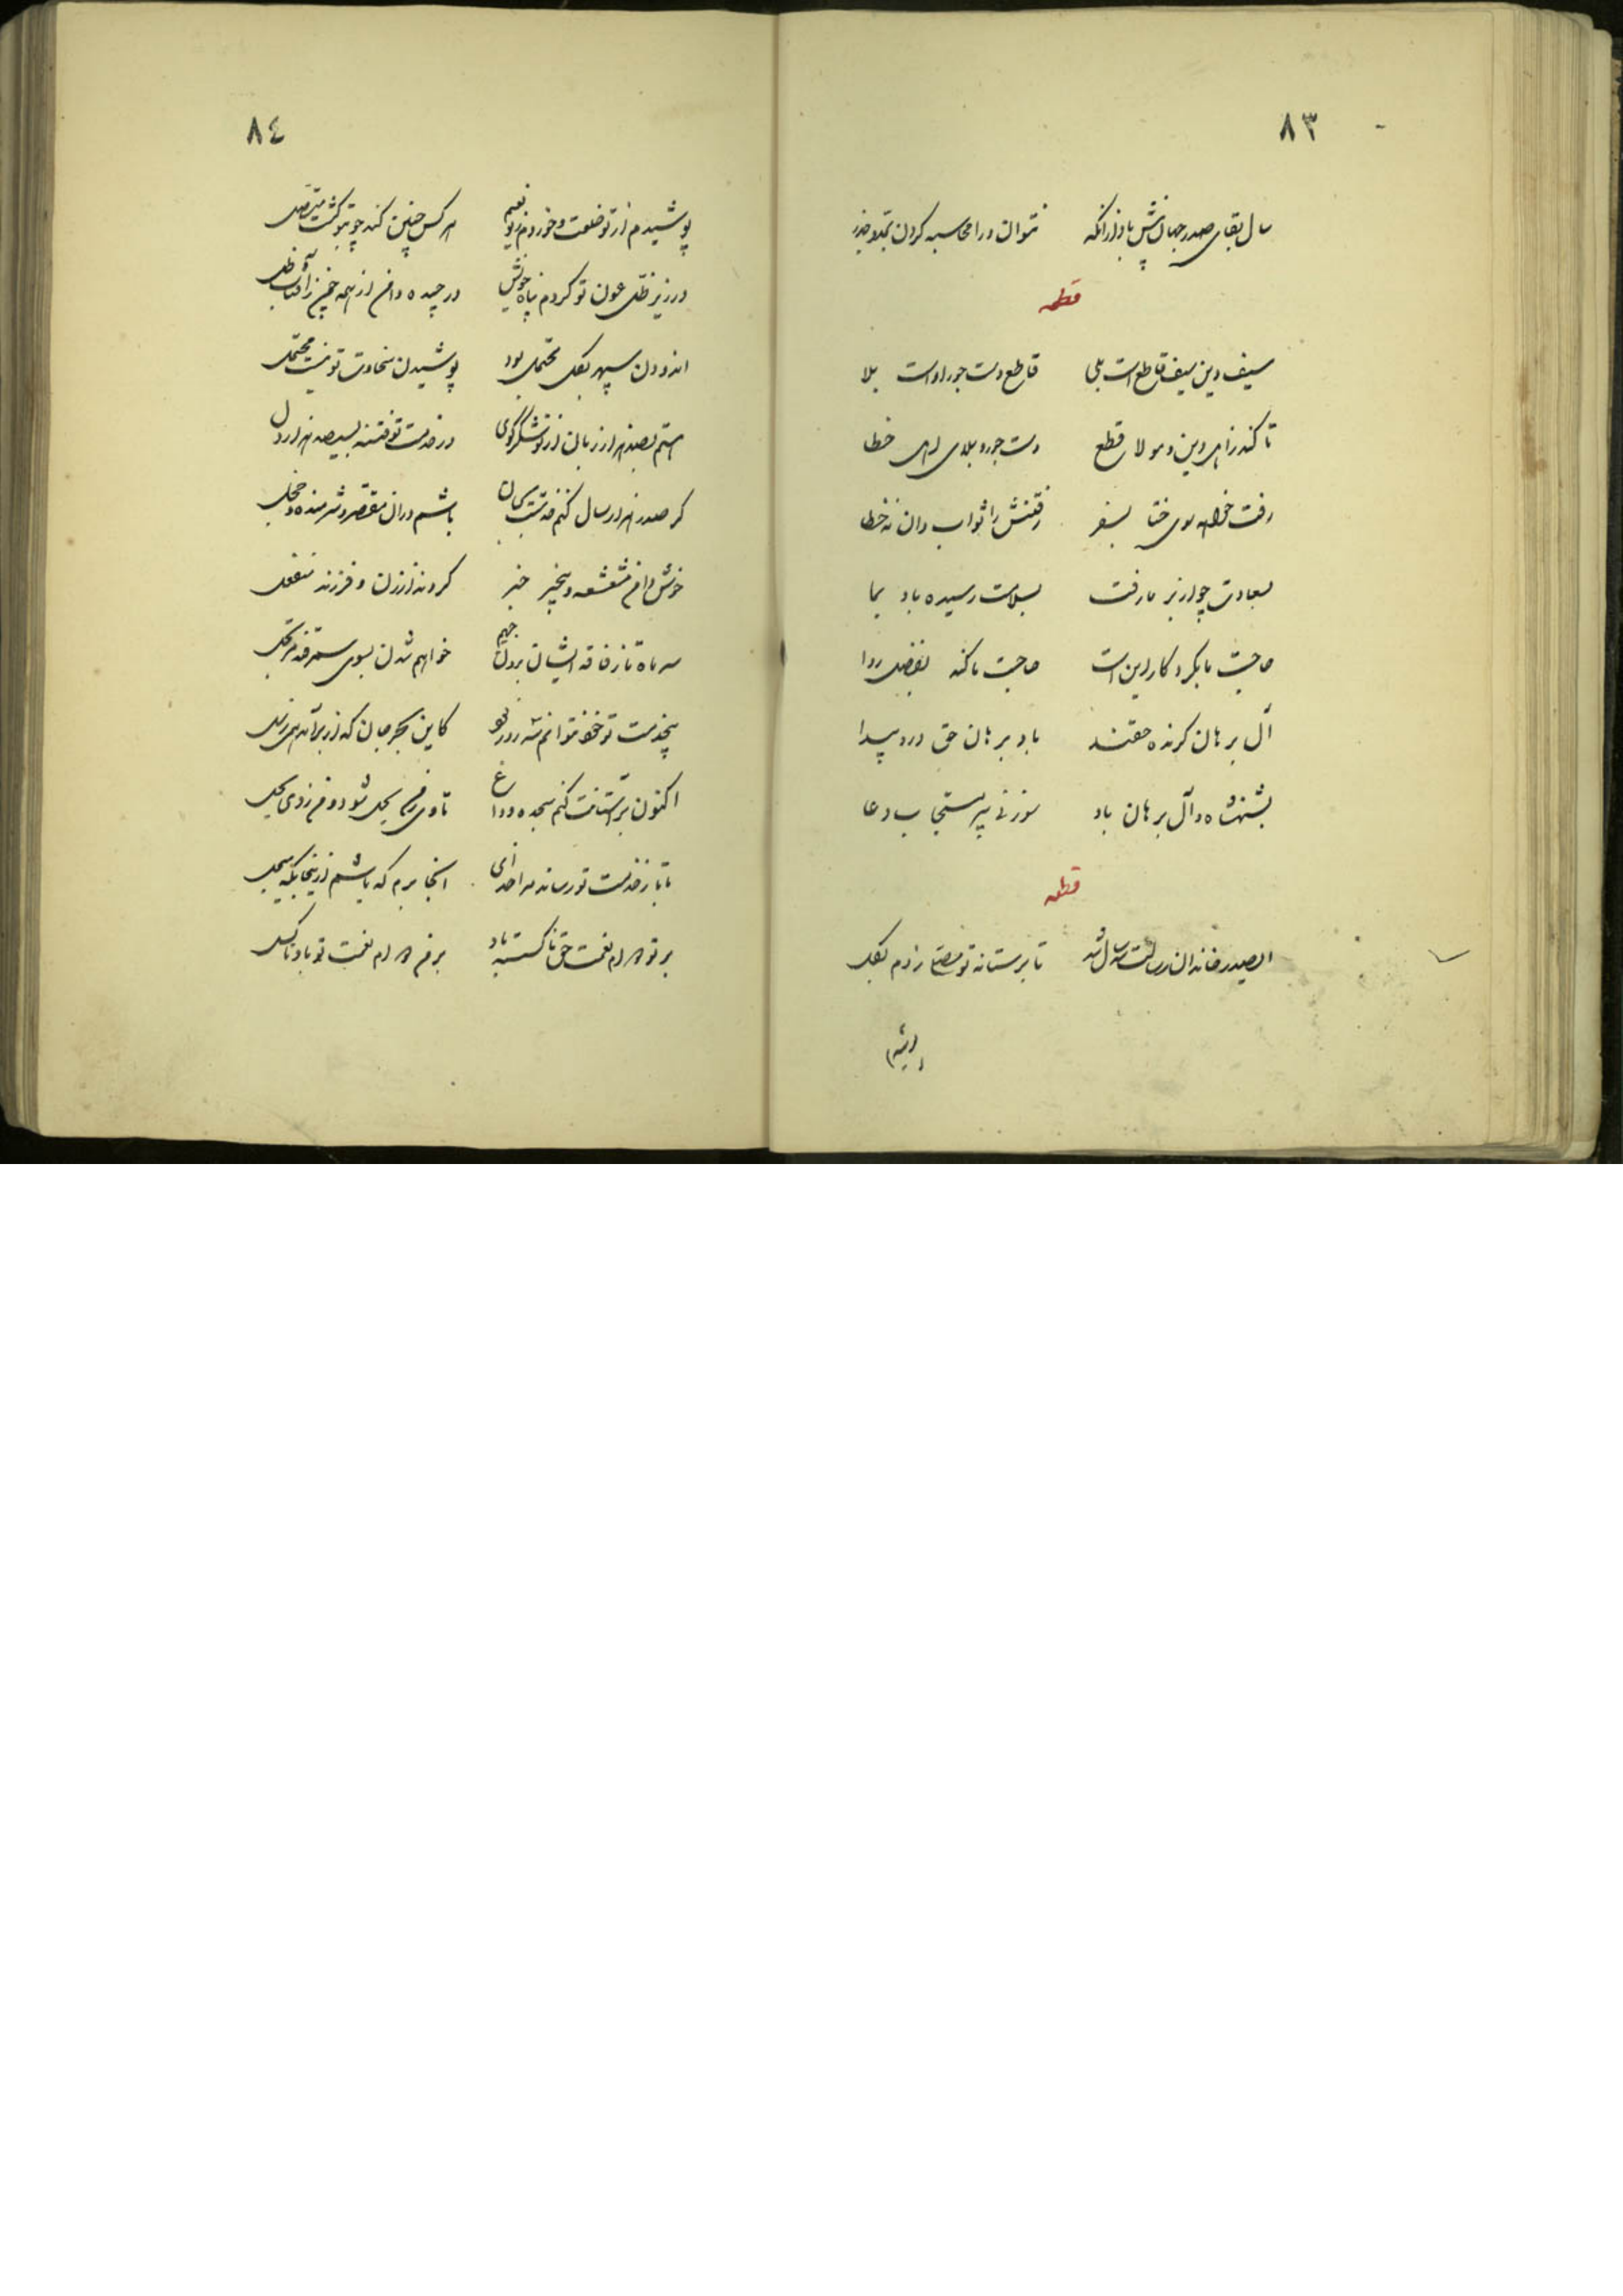 ٨٣
سال بقای صدر جهان بیش باد از آنکه نتوان ورا محاسبه کردن
قطعه
سیف دین سیف قاطع است بلی قاطع دست جور اوست بلا
تا کند ز اهل دین و مولا قطع دست جور و بلای اهل خطا
رفت خواهد سوی ختا بسفر رفتنش را ثواب دان نه خطا
بسعادت چو از بر ما رفت بسلامت رسیده باد بما
حاجت ما بکردکار این است حاجت ما کند بفضل روا
آل برهان گزیده حقند باد برهان حق درو پیدا
پشت و پناه آل برهان باد سوزنی پیر مستجاب دعا
قطعه
ای صدر خاندان رسالت سه سال شد تا بر ستانه تو زدم بغل
پوشیدم
٨٤
پوشیدم از تو خلعت و خوردم ز تو نعیم هر کس چنین کند چو بتو گشت متصل
در زیر ظل عون تو کردم پناه خویش در چیده دامن از همه چون ز آفتاب ظل
اندودن سپهر بگل محتمل بود پوشیدن سخاوت تو نیست محتمل
هستم بصد هزار زبان از تو شکرگوی در خدمت تو فتنه بسیصد هزار دل
گر صد هزار سال کنم خدمتت بجان باشم در آن مقصر و شرمنده و خجل
خوش دامن و بیخبر خبر کردند از زن و فرزند منفعل
سه ماه تا ز فاقه ایشان برون جهم خواهم شدن بسوی سمرقند مرتحل
بیخدمت تو خفت نتوانم سه روز
اکنون بر آستانت کنم سجده وداع
تا باز خدمت تو رساند مرا خدای آنجا برم که باشم از اینجا
بر تو مدام نعمت حق ناگسسته باد بر من مدام نعمت تو باد ناگسل